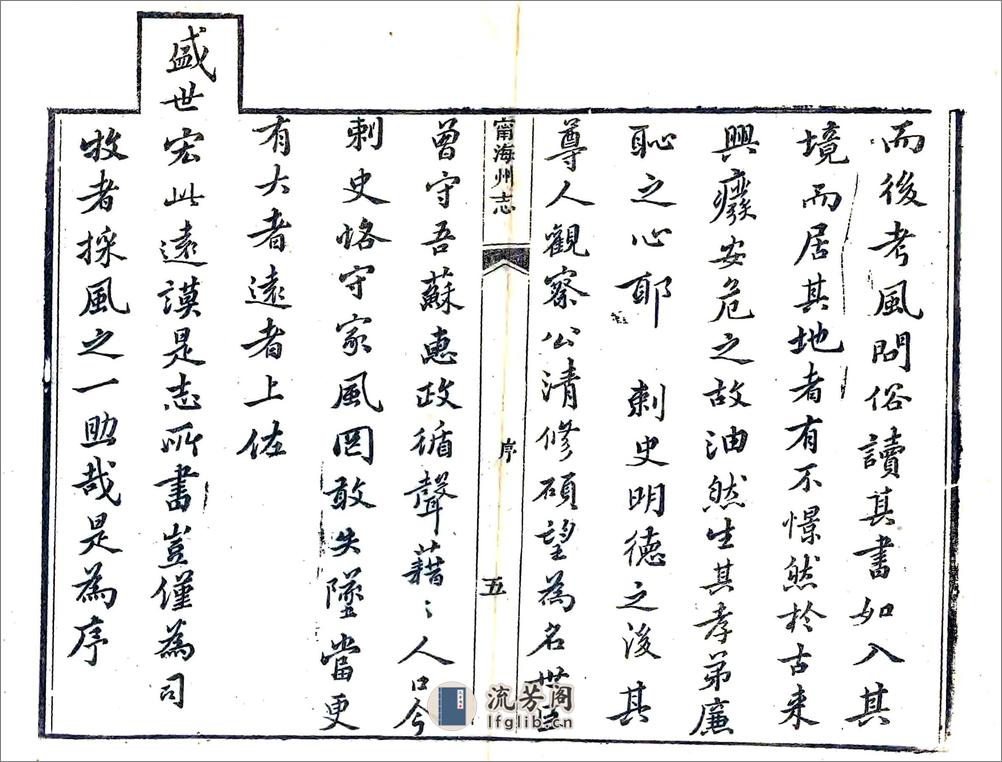 而後考風問俗讀其書如入其
境而居其地者有不憬然於古来
興癈安危之故油然生其孝弟廉
恥之心耶 刺史明德之後其
尊人觀察公清修碩望為名世
甯海州志
序
五
曾守吾蘇惠政循聲藉〻人口今
刺史恪守家風罔敢失墜當更
有大者遠者上佐
盛世宏此遠謨是志所書豈僅為司
牧者採風之一助哉是為序
流芳阁
lfglib.cn